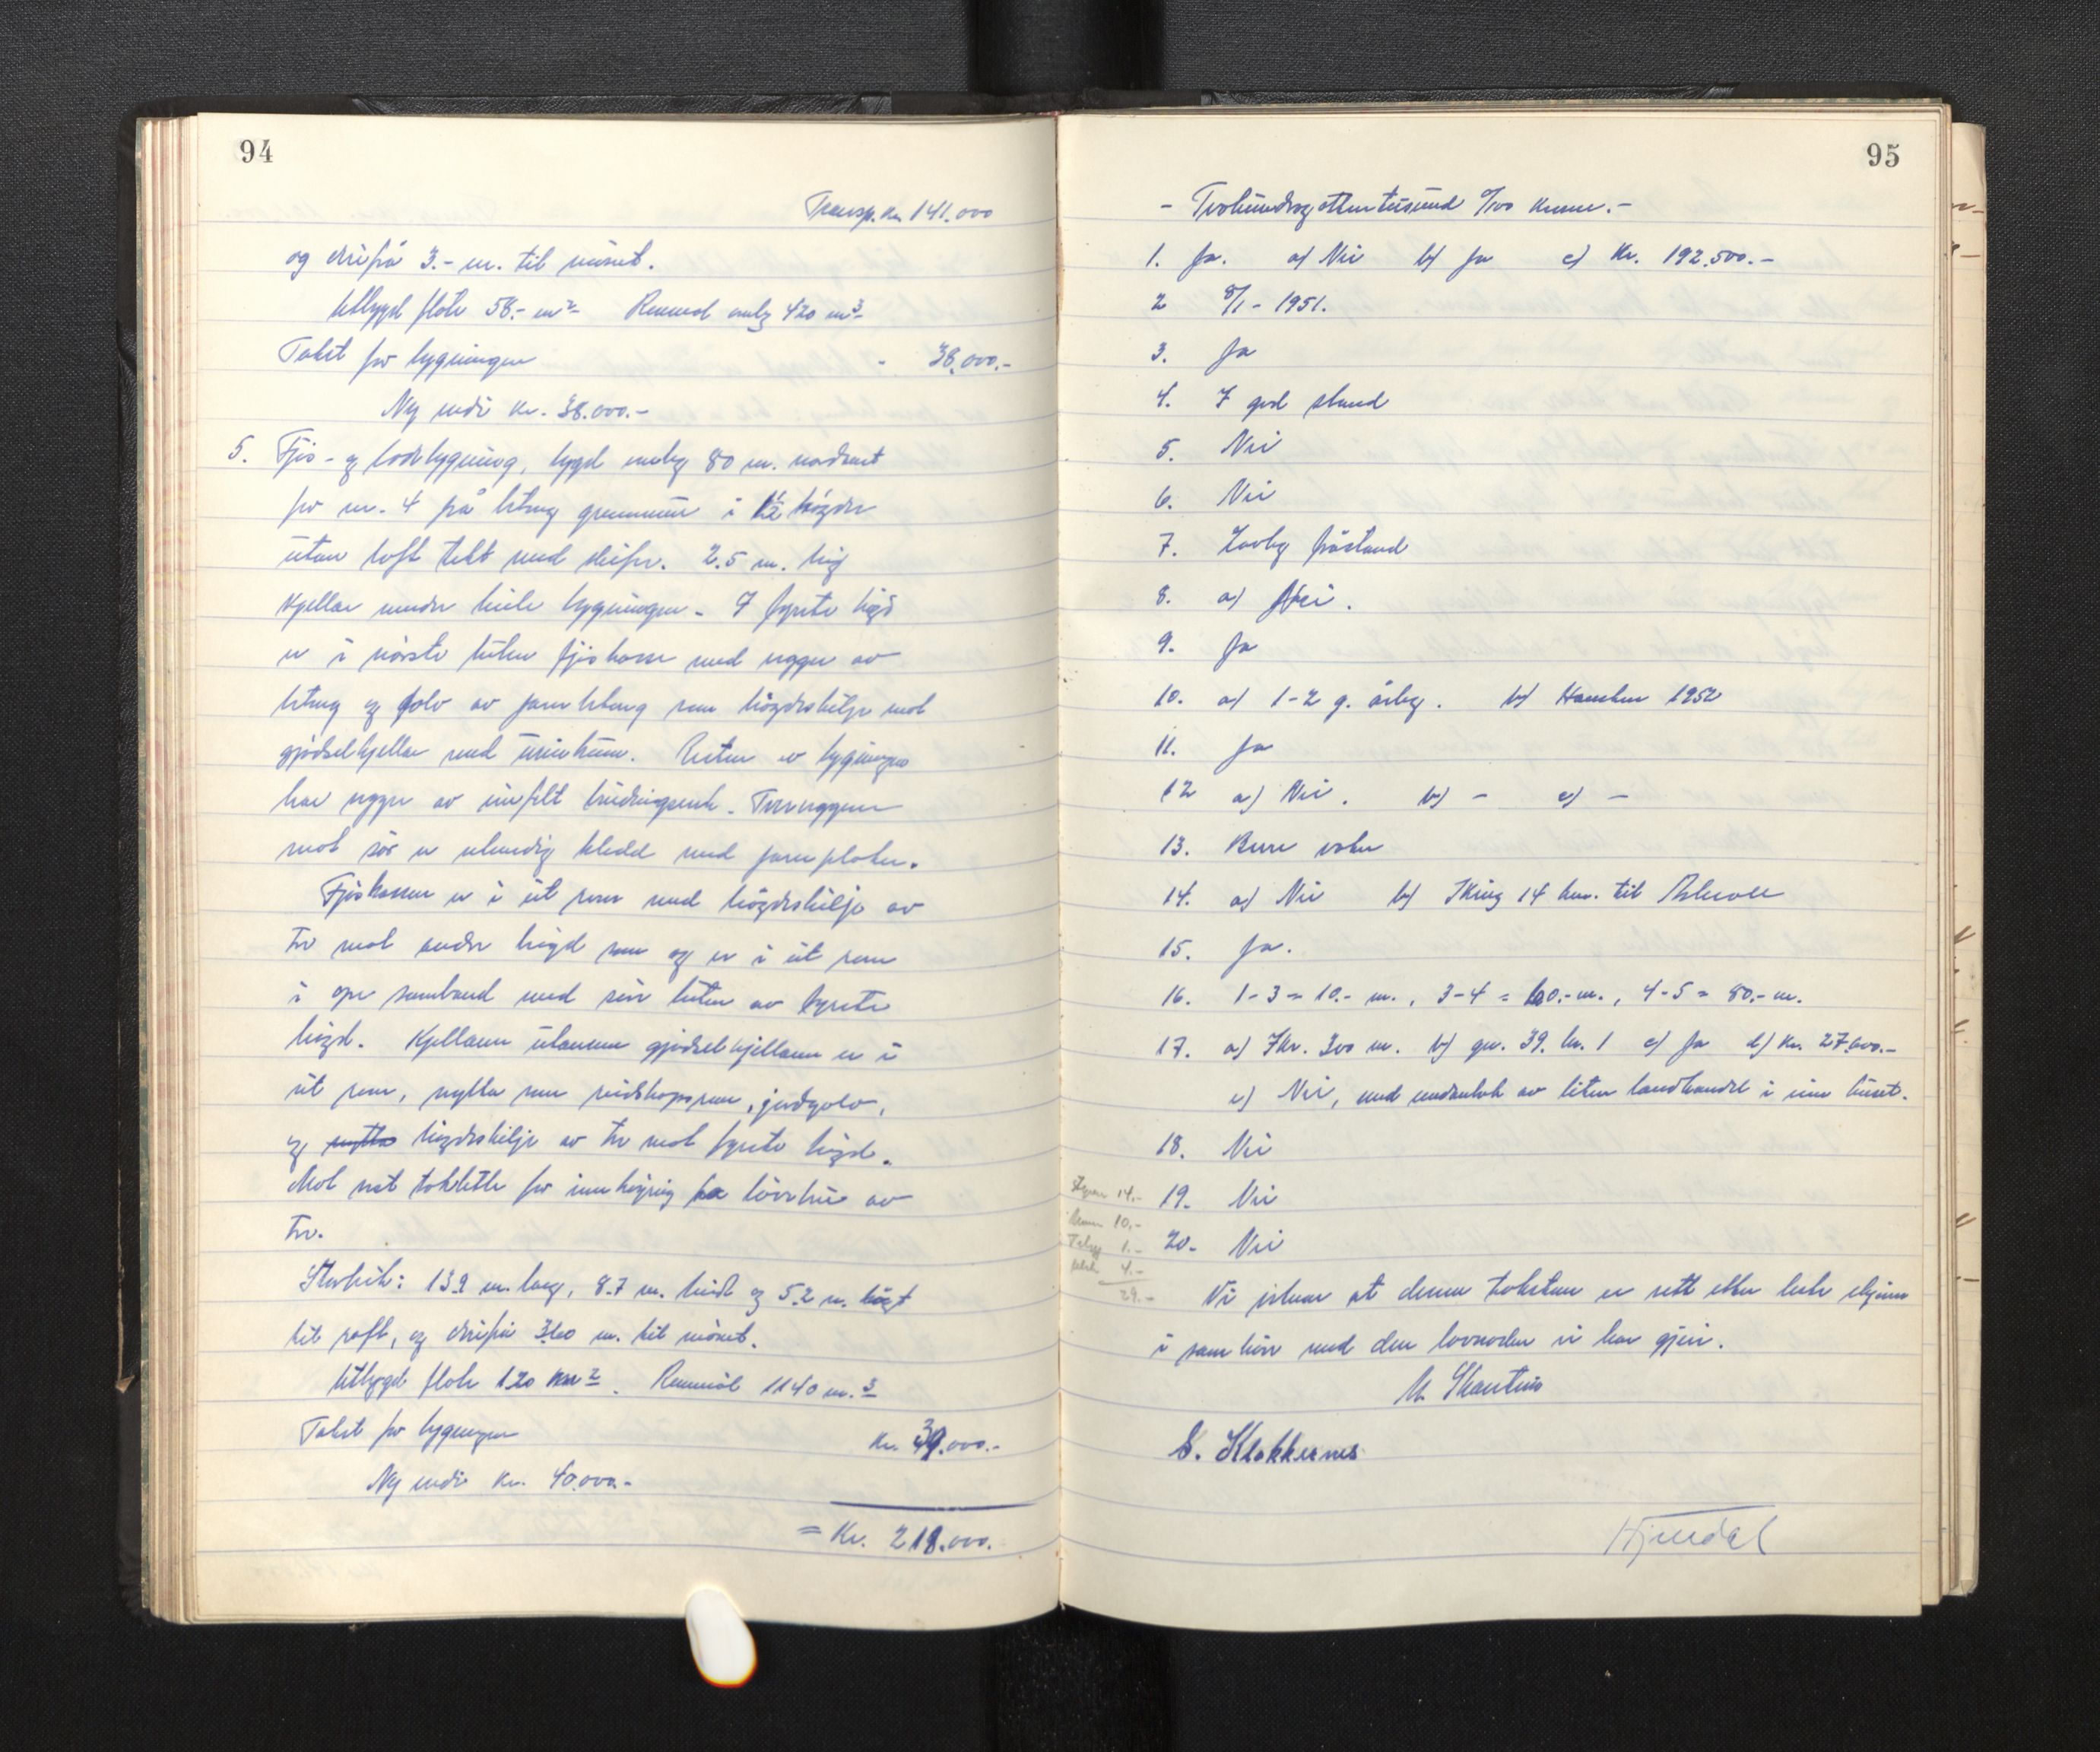 94
Transp. Kr. 141.000
og derifrå 3.- m. til mønet.
Utbygd flate 58.- m² Rummål omlag 420 m³
Takst for bygningen - 38.000.-
Ny verdi kr. 38.000.-
5. Fjøs- og lødebygning, bygd omlag 80 m. nordaust
for nr. 4 på betong grunnmur i 1½ høgder
utan loft tekt med skifer. 2.5 m. høg
kjellar under heile bygningen. I fyrste høgd
er i nørste luten fjøskasse med vegger av
betong og golv av jarnbetong som høgdeskilje mot
gjødselkjellar med urinkum. Resten av bygningen
har vegger av einfelt bindingsverk. Tverveggen
mot sør er utvendig kledd med jarnplater.
Fjøskassen er i eit rom med høgdeskilje av
tre mot andre høgd som og er i eit rom
i ope samband med søre luten av fyrste
høgd. Kjellaren utanum gjødselkjellaren er i
eit rom, nytta som reidskapsrom, jordgolv,
og nytta høgdeskilje av tre mot fyrste høgd.
Mot vest takletta for innkøyring på låvebru av
tre.
Storleik: 13.9 m. lang, 8.7 m. breid og 5.2 m. høgt
til raft, og derifrå 3.60 m. til mønet.
Utbygd flate 120 m². Rummål 1140 m.³
Takst for bygningen Kr. 39.000.-
Ny verdi kr. 40.000.-
= Kr. 218.000.
95
- Tvohundreogattentusund 0/100 kroner.-
1. Ja. a) Nei b) Ja c) Kr. 192.500.-
2 8/1 - 1951.
3. Ja
4. I god stand
5. Nei
6. Nei
7. Lovleg fråstand
8. a) Nei.
9. Ja
10. a) 1-2 g. årleg. b) Hausten 1952
11. Ja
12 a) Nei. b) - c) -
13. Berre voler
14. a) Nei b) Ikring 14 km. til Askvoll
15. Ja.
16. 1-3 = 10.- m., 3-4 = 60.- m., 4-5 = 80.- m.
17. a) Ikr. 300 m. b) gnr. 39. br. 1 c) Ja d) Kr. 27.600.-
e) Nei, med undantak av liten landhandel i eine huset.
18. Nei
19. Nei
20. Nei
14.-
10.-
1.-
4.-
29.-
Vi vitnar at denne taksten er sett etter beste skjønn
i samhøve med den lovnaden vi har gjeve.
S. Klokkernes